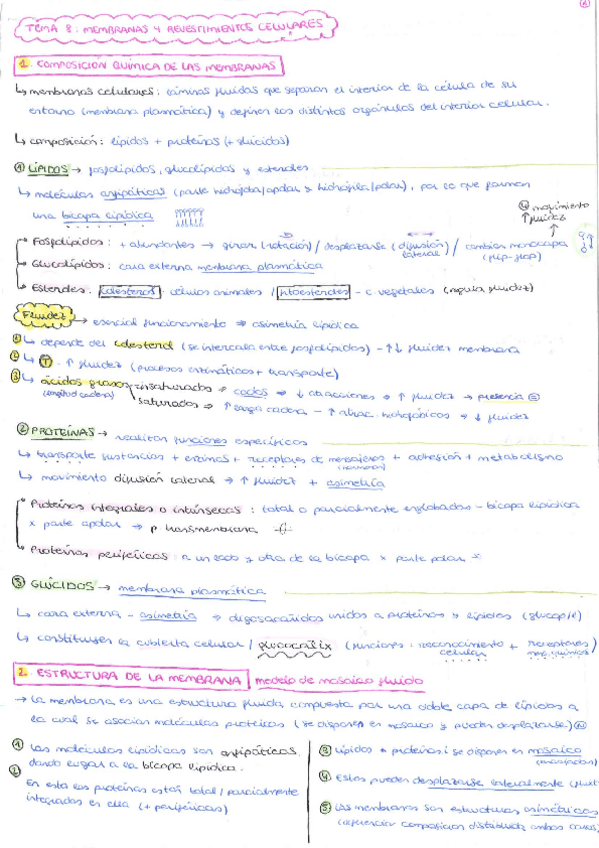 TEMA 8: MEMBRANAS Y REVESTIMIENTOS CELULARES
1. COMPOSICIÓN QUÍMICA DE LAS MEMBRANAS
↳ membranas celulares: láminas fluidas que separan el interior de la célula de su
entorno (membrana plasmática) y definen los distintos orgánulos del interior celular.
↳ composición: lípidos + proteínas (+ glúcidos)
① LÍPIDOS → fosfolípidos, glucolípidos y esteroles
↳ moléculas anfipáticas (parte hidrófoba/apolar y hidrófila/polar), por lo que forman
una bicapa lipídica
movimiento
↑ fluidez
Fosfolípidos: + abundantes → girar (rotación) / desplazarse (difusión lateral) / cambiar monocapa (flip-flop)
Glucolípidos: cara externa membrana plasmática
Esteroles: colesterol: células animales / fitoesteroles - c. vegetales (regula fluidez)
Fluidez → esencial funcionamiento ⇒ asimetría lipídica
① ↳ depende del colesterol (se intercala entre fosfolípidos) - ↑↓ fluidez membrana
② ↳ T - ↑ fluidez (procesos enzimáticos + transporte)
③ ↳ ácidos grasos insaturados → codos → ↓ atracciones → ↑ fluidez → presencia
(longitud cadena) saturados → ↑ larga cadena - ↑ atrac. hidrofóbicos → ↓ fluidez
② PROTEÍNAS → realizan funciones específicas
↳ transporte sustancias + enzimas + receptores de mensajeros + adhesión + metabolismo
(hormonas)
↳ movimiento difusión lateral → ↑ fluidez + asimetría
Proteínas integrales o intrínsecas: total o parcialmente englobadas - bicapa lipídica
x parte apolar → p. transmembrana
Proteínas periféricas: a un lado y otro de la bicapa x parte polar
③ GLÚCIDOS → membrana plasmática
↳ cara externa - asimetría → oligosacáridos unidos a proteínas y lípidos (glucop/l)
↳ constituyen la cubierta celular / glucocálix (funciones: reconocimiento celular + receptores moc. químicos)
2. ESTRUCTURA DE LA MEMBRANA modelo de mosaico fluido
→ La membrana es una estructura fluida compuesta por una doble capa de lípidos a
la cual se asocian moléculas proteicas (se disponen en mosaico y pueden desplazarse)
① Las moléculas lipídicas son anfipáticas
dando lugar a la bicapa lipídica.
② En esta las proteínas están total/parcialmente
integradas en ella (+ periféricas)
③ Lípidos + proteínas: se disponen en mosaico
④ Estos pueden desplazarse lateralmente
⑤ Las membranas son estructuras asimétricas
(diferencian composición distribuida ambas caras)